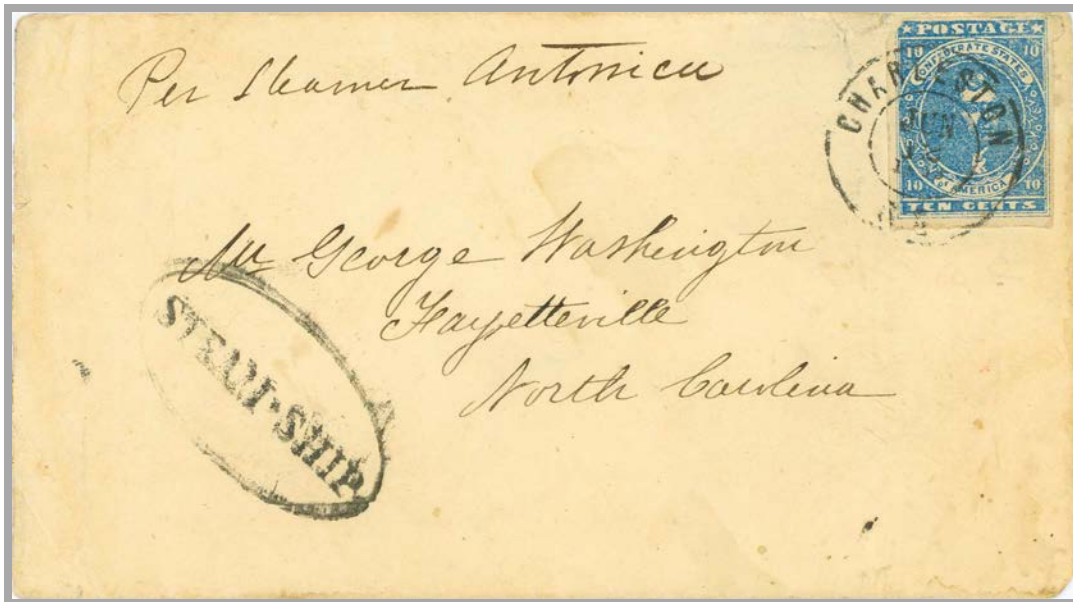 Per Steamer Antonica
★POSTAGE★
10 10
CONFEDERATE STATES
of AMERICA
10 10
TEN CENTS
CHARLESTON
JUN
Mr George Washington
Fayetteville
North Carolina
STEAM·SHIP